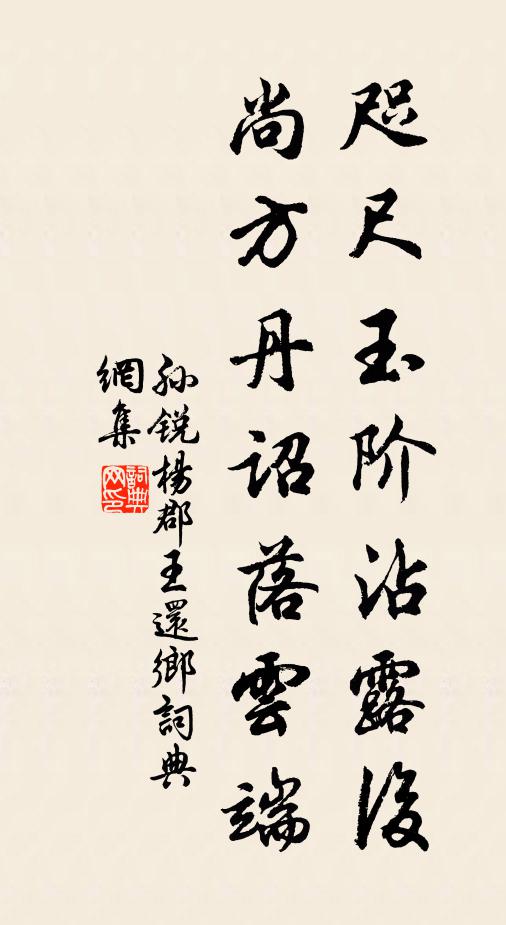 咫尺玉阶沾露后
尚方丹诏落雲端
孙锐楊郡王還鄉詞典
網集
詞典网印